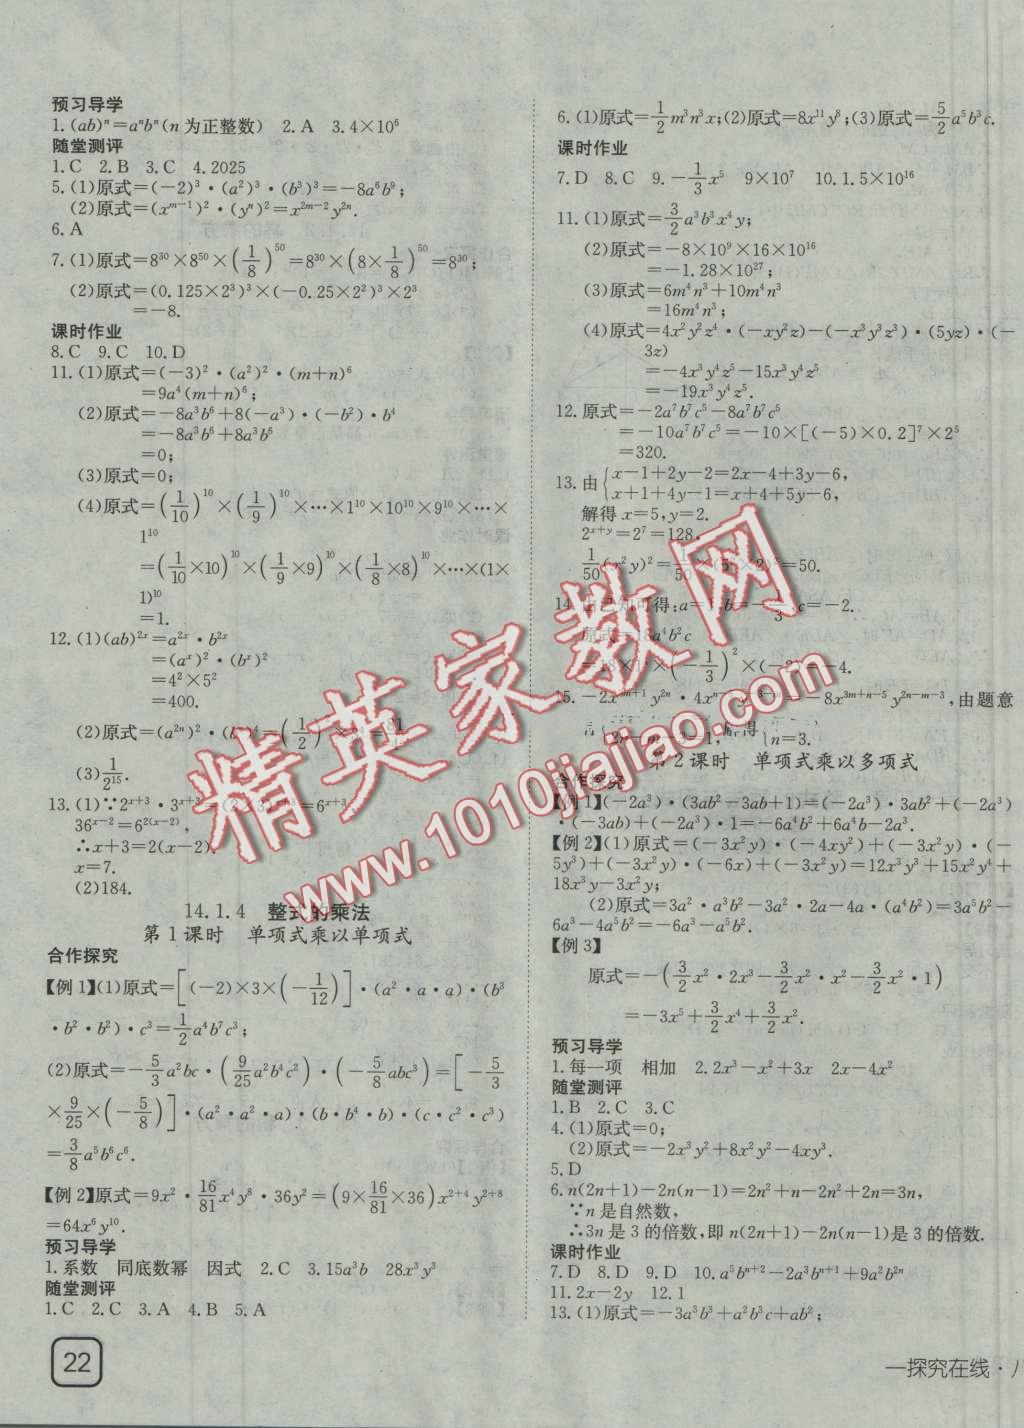 预习导学
1. (ab)ⁿ=aⁿbⁿ(n 为正整数)  2. A  3. 4×10⁶
随堂测评
1. C  2. B  3. C  4. 2025
5. (1)原式=(-2)³·(a²)³·(b³)³=-8a⁶b⁹;
(2)原式=(xᵐ⁻¹)²·(yⁿ)²=x²ᵐ⁻²y²ⁿ.
6. A
7. (1)原式=8³⁰×8⁵⁰×(1/8)⁵⁰=8³⁰×(8×1/8)⁵⁰=8³⁰;
(2)原式=(0.125×2³)³×(-0.25×2²)³×2³
=-8.
课时作业
8. C  9. C  10. D
11. (1)原式=(-3)²·(a²)²·(m+n)⁶
=9a⁴(m+n)⁶;
(2)原式=-8a³b⁶+8(-a³)·(-b²)·b⁴
=-8a³b⁶+8a³b⁶
=0;
(3)原式=0;
(4)原式=(1/10)¹⁰×(1/9)¹⁰×…×1¹⁰×10¹⁰×9¹⁰×…×
1¹⁰
=(1/10×10)¹⁰×(1/9×9)¹⁰×(1/8×8)¹⁰×…×(1×
1)¹⁰
=1.
12. (1)(ab)²ˣ=a²ˣ·b²ˣ
=(aˣ)²·(bˣ)²
=4²×5²
=400.
(2)原式=(a²ⁿ)²·(
(3)1/2¹⁵.
13. (1)∵2ˣ⁺³·3ˣ⁺³=(2×3)ˣ⁺³=6ˣ⁺³
36ˣ⁻²=6²⁽ˣ⁻²⁾,
∴x+3=2(x-2).
x=7.
(2)184.
14.1.4  整式的乘法
第 1 课时  单项式乘以单项式
合作探究
【例 1】(1)原式=[(-2)×3×(-1/12)]·(a²·a·a)·(b³
·b²·b²)·c³=1/2a⁴b⁷c³;
(2)原式=-5/3a²bc·(9/25a²b⁴c²)·(-5/8abc³)=[-5/3
×9/25×(-5/8)]·(a²·a²·a)·(b·b⁴·b)·(c·c²·c³)
=3/8a⁵b⁶c⁶.
【例 2】原式=9x²·16/81x⁴y⁸·36y²=(9×16/81×36)x²⁺⁴y²⁺⁸
=64x⁶y¹⁰.
预习导学
1. 系数  同底数幂  因式  2. C  3. 15a³b  28x³y³
随堂测评
1. C  2. C  3. A  4. B  5. A
22
6. (1)原式=1/2m³n³x;(2)原式=8x¹¹y⁸;(3)原式=5/2a⁵b³c.
课时作业
7. D  8. C  9. -1/3x⁵  9×10⁷  10. 1.5×10¹⁶
11. (1)原式=3/2a³b³x⁴y;
(2)原式=-8×10⁹×16×10¹⁶
=-1.28×10²⁷;
(3)原式=6m⁴n³+10m⁴n³
=16m⁴n³;
(4)原式=4x²y²z⁴·(-xy²z)-(-x³y³z³)·(5yz)·(-
3z)
=-4x³y⁴z⁵-15x³y⁴z⁵
=-19x³y⁴z⁵.
12. 原式=-2a⁷b⁷c⁵-8a⁷b⁷c⁵
=-10a⁷b⁷c⁵=-10×[(-5)×0.2]⁷×2⁵
=320.
13. 由{x-1+2y-2=2x-4+3y-6,
x+1+4y-1=x+4+5y-6,
解得 x=5,y=2.
2ˣ⁺ʸ=2⁷=128.
1/50(x²y)²=1/50×(5²×2)²=50.
14. 由已知可得:a=1,b=-1/3,c=-2.
原式=18a⁴b²c
=18×1×(-1/3)²×(-2)=-4.
15. -2x³ᵐ⁺¹y²ⁿ·4xⁿ⁻ =-8x³ᵐ⁺ⁿ⁻⁵y²ⁿ⁻ᵐ⁻³,由题意
解得 n=3.
第 2 课时  单项式乘以多项式
合作探究
【例 1】(-2a³)·(3ab²-3ab+1)=(-2a³)·3ab²+(-2a³)
·(-3ab)+(-2a³)·1=-6a⁴b²+6a⁴b-2a³.
【例 2】(1)原式=(-3x²y)·(-4xy²)+(-3x²y)·(-
5y³)+(-3x²y)·(-6x)+(-3x²y)=12x³y³+15x²y⁴+
18x³y-3x²y;
(2)原式=3a²·a³b²-3a²·2a-4a·(a⁴b²)=3a⁵b²-
6a³-4a⁵b²=-6a³-a⁵b².
【例 3】
原式=-(3/2x²·2x³-3/2x²·x²-3/2x²·1)
=-3x⁵+3/2x⁴+3/2x².
预习导学
1. 每一项  相加  2. 2x³-x²+3x  2x-4x²
随堂测评
1. B  2. C  3. C
4. (1)原式=0;
(2)原式=-2x³y²+8x²y²-4xy³.
5. D
6. n(2n+1)-2n(n-1)=2n²+n-2n²+2n=3n,
∵n 是自然数,
∴3n 是 3 的倍数,即 n(2n+1)-2n(n-1)是 3 的倍数.
课时作业
7. D  8. D  9. D  10. a⁵bⁿ⁺²-2a³bⁿ⁺¹+9a²b²ⁿ
11. 2x-2y  12. 1
13. (1)原式=-3a³b³+a²b³c+ab²;
一探究在线·八
精英家教网
www.1010jiajiao.com